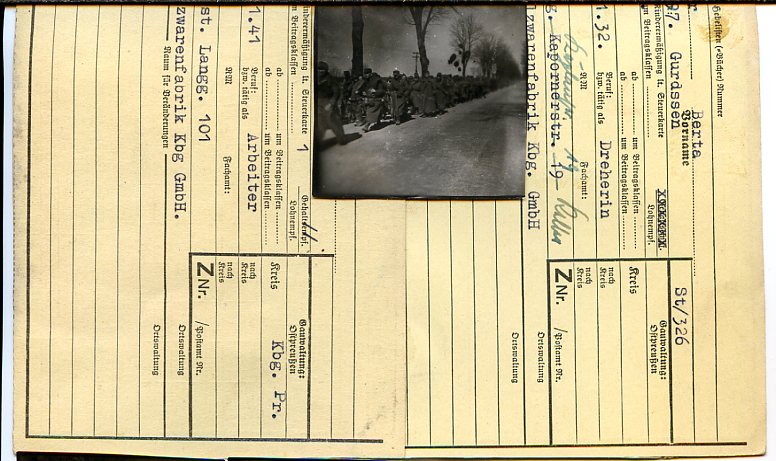 Hebelisten (=Bücher) Nummer
Berta
Vorname
97. Gurdssen
Kinderermäßigung lt. Steuerkarte
um Beitragsklassen
Lohnempf.
ab um Beitragsklassen
ab um Beitragsklassen
1.32. Beruf: bzw. tätig als Dreherin
RM Fachamt:
g. Kapornerstr. 19
lzwarenfabrik Kbg. GmbH
St/326
Gauwaltung:
Ostpreußen
Kreis
nach Kreis
nach Kreis
Z Nr. /Postamt Nr.
Ortswaltung
Ortswaltung
Kinderermäßigung lt. Steuerkarte 1
um Beitragsklassen
Gehaltsempf.
Lohnempf.
ab um Beitragsklassen
ab um Beitragsklassen
1.41 Beruf: bzw. tätig als Arbeiter
RM Fachamt:
st. Langg. 101
zwarenfabrik Kbg GmbH.
Raum für Veränderungen
Gauwaltung:
Ostpreußen
Kreis Kbg. Pr.
nach Kreis
nach Kreis
Z Nr. /Postamt Nr.
Ortswaltung
Ortswaltung